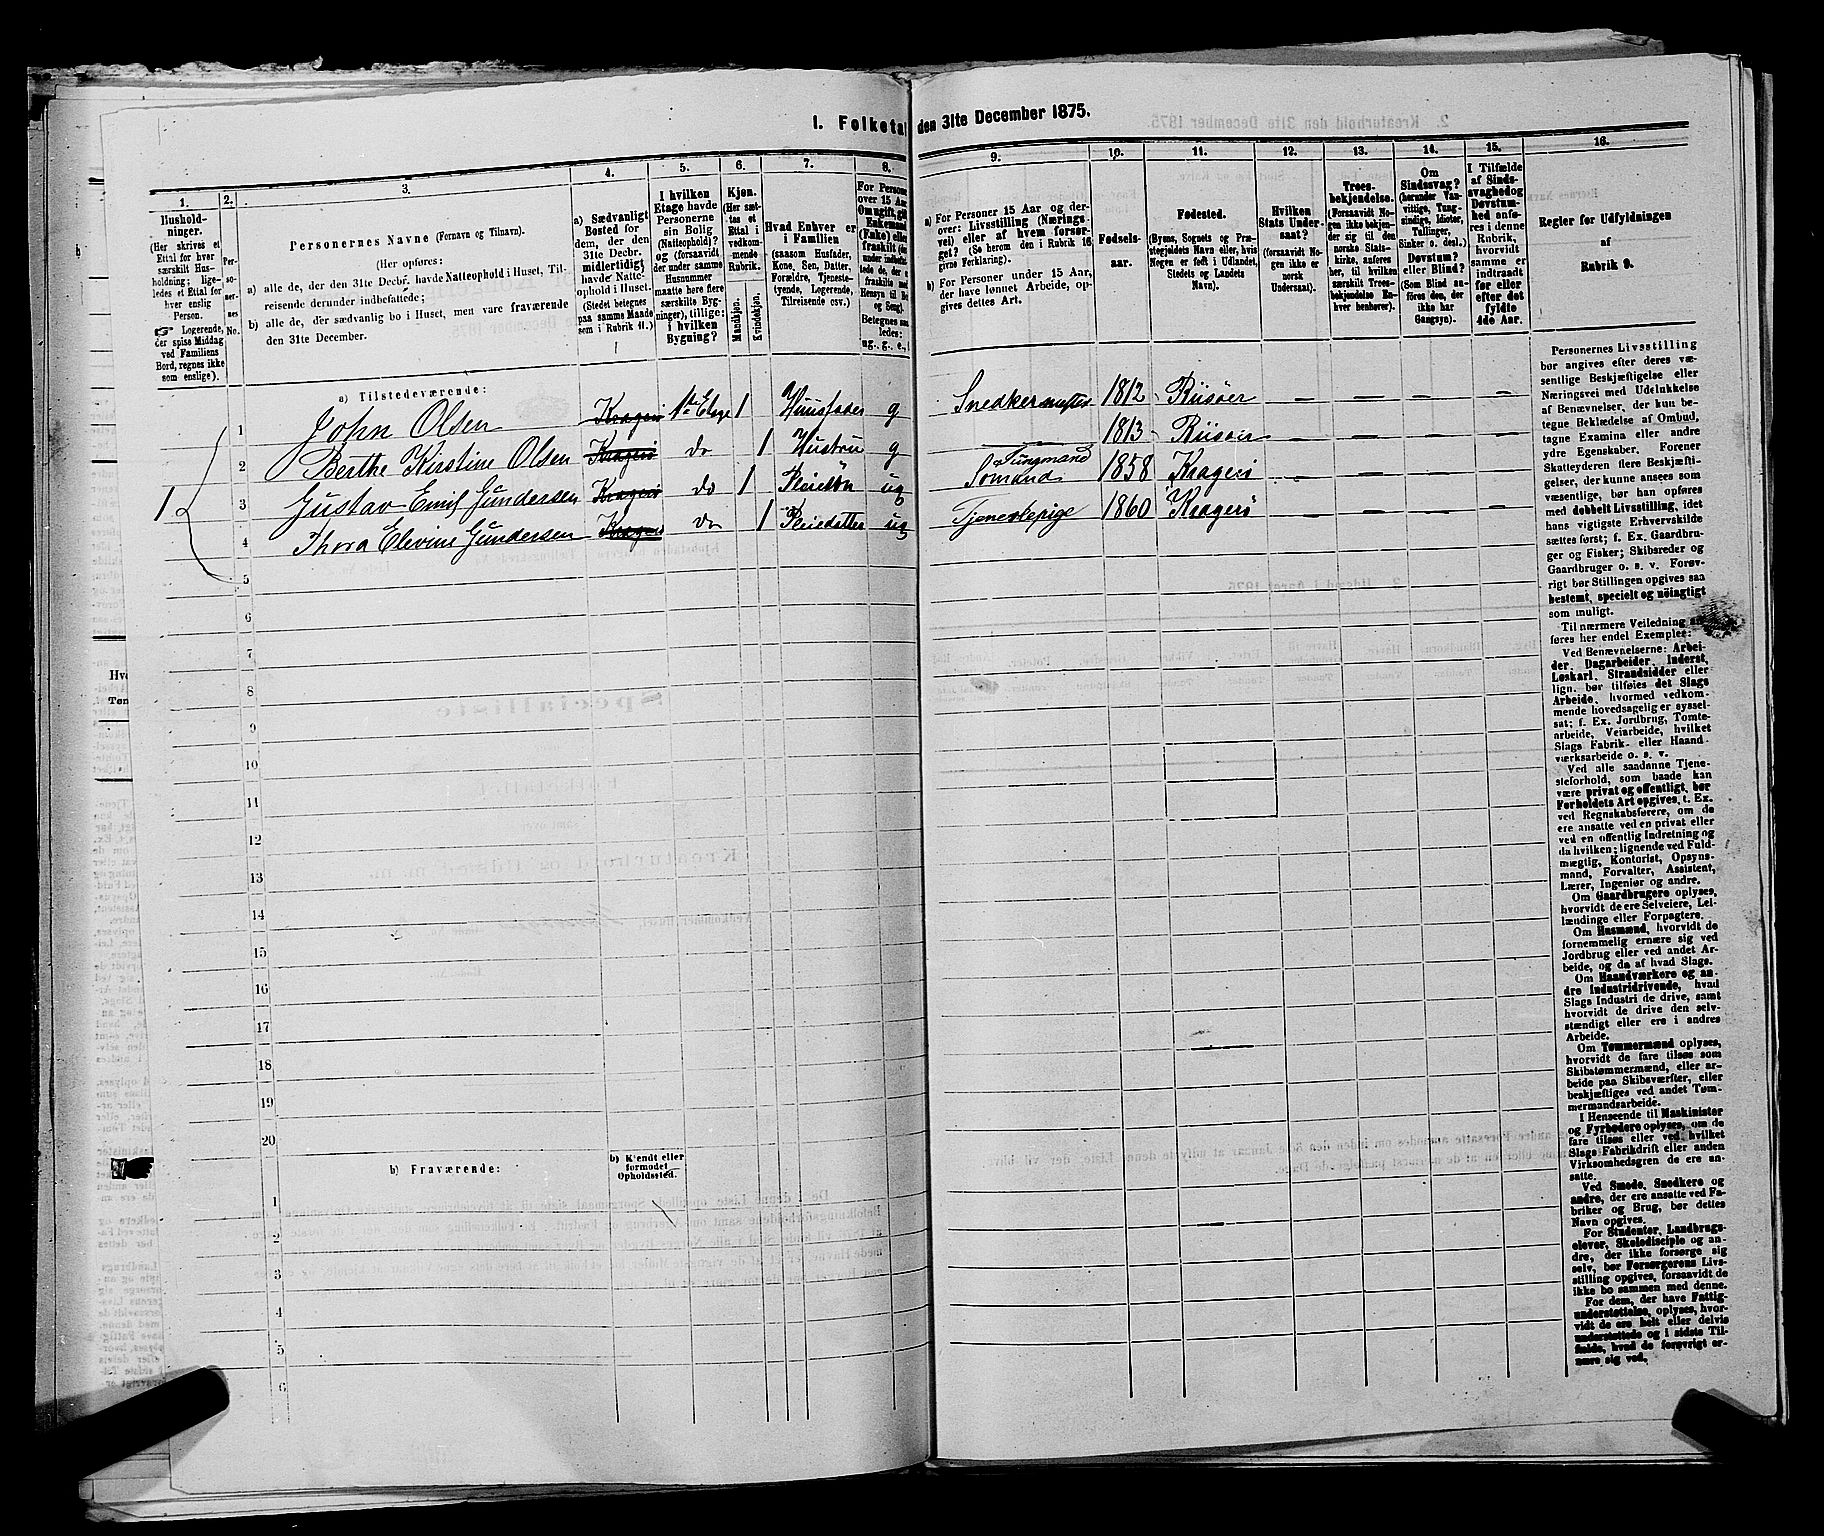 I. Folketal den 31te December 1875.
1.
Hushold-
ninger.
(Her skrives et
Ettal for hver
særskilt Hus-
holdning; lige-
ledes et Ettal for
hver enslig
Person.
☞ Logerende,
der spise Middag
ved Familiens
Bord, regnes ikke
som enslige).
2.
Per-
so-
ner-
nes
No.
3.
Personernes Navne (Fornavn og Tilnavn).
(Her opføres:
a) alle de, der den 31te Decbr. havde Natteophold i Huset, Til-
reisende derunder indbefattede;
b) alle de, der sædvanlig bo i Huset, men vare fraværende
den 31te December.
4.
a) Sædvanligt
Bosted for
dem, der den
31te Decbr.
midlertidigt
havde Natte-
ophold i Huset.
(Stedet betegnes
paa samme Maade
som i Rubrik 11.)
5.
I hvilken
Etage havde
Personerne
sin Bolig
(Natteophold)?
og (forsaavidt
der under samme
Husnummer
maatte høre flere
særskilte Byg-
ninger), tillige:
i hvilken
Bygning?
6.
Kjøn.
(Her sæt-
tes et
Ettal i
vedkom-
mende
Rubrik.
Mandkjøn.
Kvindekjøn.
7.
Hvad Enhver er
i Familien
(saasom Husfader,
Kone, Søn, Datter,
Forældre, Tjeneste-
tyende, Logerende,
Tilreisende osv.)
8.
9.
a) For Personer 15 Aar og der-
over: Livsstilling (Nærings-
vei) eller af hvem forsør-
get? (Se herom den i Rubrik 16
givne Forklaring).
b) For Personer under 15 Aar,
der have lønnet Arbeide, op-
gives dettes Art.
10.
Fødsels-
aar.
11.
Fødested.
(Byens, Sognets og Præ-
stegjeldets Navn eller, hvis
Nogen er født i Udlandet,
Stedets og Landets
Navn).
12.
Hvilken
Stats Under-
saat?
(forsaavidt No-
gen ikke er
norsk
Undersaat).
13.
Troes-
bekjendelse.
(Forsaavidt No-
gen ikke bekjen-
der sig til den
norske Stats-
kirke, anføres
her, til hvilken
særskilt Troes-
bekjendelse En-
hver henhører).
14.
Om
Sindssvag?
(herunder Van-
vittige, Tung-
sindige, Idioter,
Tullinger,
Sinker o. desl.)
Døvstum?
eller Blind?
(Som Blind an-
føres den, der
ikke har
Gangsyn).
15.
I Tilfælde
af Sinds-
svaghed og
Døvstum-
hed anfø-
res i denne
Rubrik,
hvorvidt
samme er
indtraadt
før eller
efter det
fyldte
4de Aar.
16.
Regler for Udfyldningen
af
Rubrik 9.
a) Tilstedeværende:
1 1 John Olsen Kragerø 1te Etage 1 Huusfader g Snedkermester 1812 Riisøer
2 Berthe Kirstine Olsen Kragerø do 1 Hustru g 1813 Riisøer
3 Gustav Emil Gundersen Kragerø do 1 Pleiesøn ug Jungmand Sømand 1858 Kragerø
4 Thora Elevine Gundersen Kragerø do 1 Pleiedatter ug Tjenestepige 1860 Kragerø
5
6
7
8
9
10
11
12
13
14
15
16
17
18
19
20
b) Fraværende:
b) Kjendt eller
formodet
Opholdssted.
1
2
3
4
5
6
Personernes Livsstilling
bør angives efter deres væ-
sentlige Beskjæftigelse eller
Næringsvei med Udelukkelse
af Benævnelser, der kun be-
tegne Beklædelse af Ombud,
tagne Examina eller andre
ydre Egenskaber. Forener
Skatteyderen flere Beskjæfti-
gelser, der kunne ansees som
væsentlige, bør han opføres
med dobbelt Livsstilling, idet
hans vigtigste Erhvervskilde
sættes først; f. Ex. Gaardbru-
ger og Fisker; Skibsreder og
Gaardbruger o. s. v. Forøv-
rigt bør Stillingen opgives saa
bestemt, specielt og nöiagtigt
som muligt.
Til nærmere Veiledning an-
føres her endel Exempler:
Ved Benævnelserne: Arbei-
der, Dagarbeider, Inderst,
Løskarl, Strandsidder eller
lign. bør tilføies det Slags
Arbeide, hvormed vedkom-
mende hovedsagelig er syssel-
sat; f. Ex. Jordbrug, Tomte-
arbeide, Veiarbeide, hvilket
Slags Fabrik- eller Haand-
værksarbeide o. s. v.
Ved alle saadanne Tjene-
steforhold, som baade kan
være privat og offentligt, bør
Forholdets Art opgives, t. Ex.
ved Regnskabsførere, om de
ere ansatte ved en privat eller
ved en offentlig Indretning og
da hvilken; lignende ved Fuld-
mægtig, Kontorist, Opsyns-
mand, Forvalter, Assistent,
Lærer, Ingeniør og andre.
Om Gaardbrugere oplyses,
hvorvidt de ere Selveiere, Lei-
lændinge eller Forpagtere.
Om Husmænd, hvorvidt de
fornemmelig ernære sig ved
Jordbrug eller ved andet Ar-
beide, og da af hvad Slags.
Om Haandværkere og an-
dre Industridrivende, hvad
Slags Industri de drive, samt
hvorvidt de drive den selv-
stændigt eller ere i andres
Arbeide.
Om Tømmermænd oplyses,
hvorvidt de fare tilsøs som
Skibstømmermænd, eller ar-
beide paa Skibsværfter, eller
beskjæftiges ved andet Tøm-
mermandsarbeide.
I Henseende til Maskinister
og Fyrbødere oplyses, om de
fare tilsøs eller ved hvilket
Slags Fabrikdrift eller anden
Virksomhedsgren de ere an-
satte.
Ved Smede, Snedkere og
andre, der ere ansatte ved Fa-
briker og Brug, bør dettes
Navn opgives.
For Studenter, Landbrugs-
elever, Skoledisciple og an-
dre, der ikke forsørge sig
selv, bør Forsørgerens Livs-
stilling opgives, forsaavidt de
ikke bo sammen med denne.
For dem, der have Fattig-
understøttelse, oplyses, hvor-
vidt de ere helt eller delvis
understøttede og i sidste Til-
fælde, hvad de forøvrigt er-
nære sig ved.